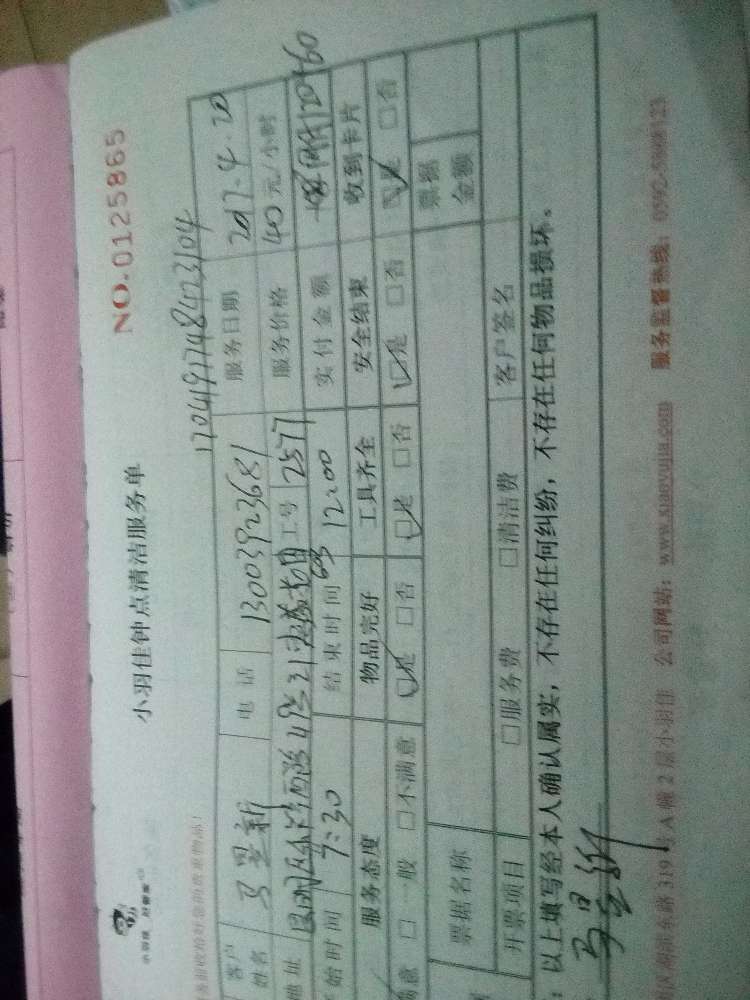 小羽佳钟点清洁服务单
NO.0125865
1704191748423104
客户姓名 马显新 电话 13003923681 服务日期 2017.4.20
地址 工号 2577 服务价格 40元/小时
始时间 7:30 结束时间 12:00 实付金额
服务态度 物品完好 工具齐全 安全结束 收到卡片
满意 □一般 □不满意 □是 □否 □是 □否 □是 □否 □是 □否
票据名称 票据金额
开票项目 □服务费 □清洁费 客户签名
：以上填写经本人确认属实，不存在任何纠纷，不存在任何物品损坏。
马显新
2层小羽佳 公司网站：www.xiaoyujia.com 服务监督热线：